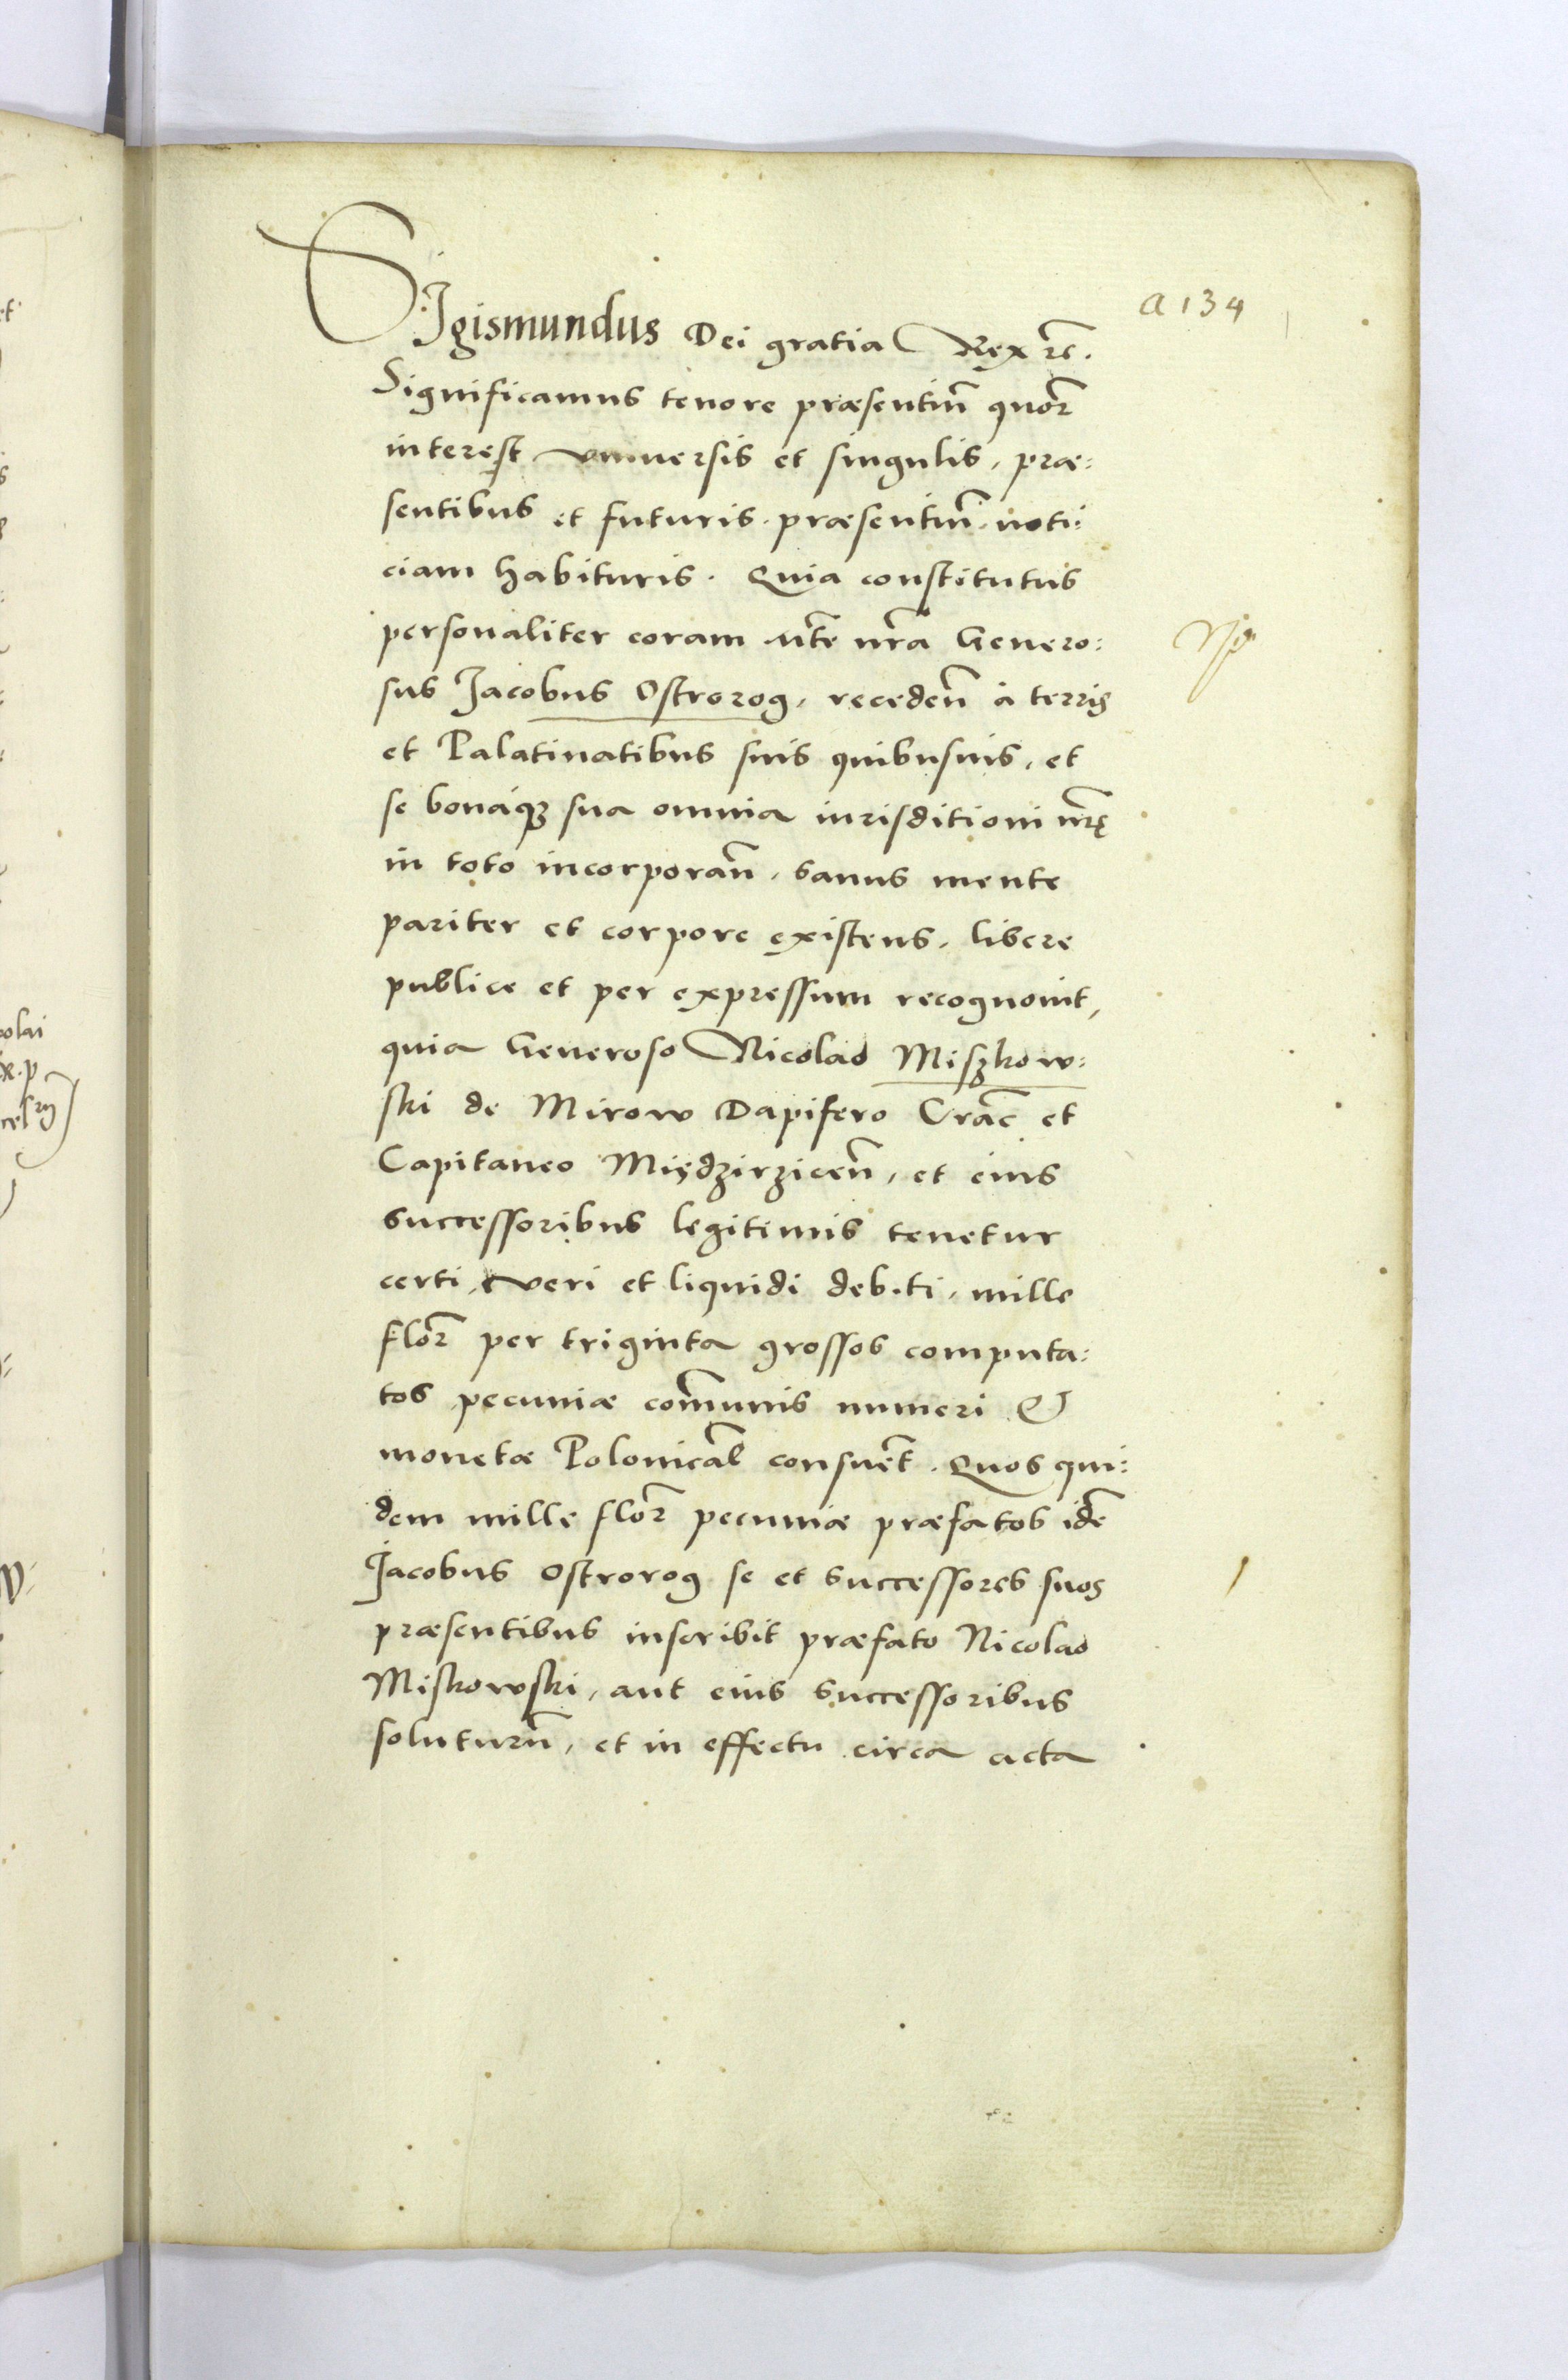 a 134
SIgismundus Dei gratia Rex etc.
Significamus tenore præsentiũ quor̃
interest vniuersis et singulis, præ:
sentibus et futuris. præsentiũ noti:
ciam habituris. Quia constitutus
personaliter coram Mte nr̃a Genero:
sus Jacobus Ostrorog, recedeñ à terris
et Palatinatibus suis quibusuis, et
se bonáq; sua omnia iurisditioni nr̃ę
in toto incorporañ, sanus mente
pariter et corpore existens, libere
publice et per expressum recognouit,
quia Generoso Nicolao Miszkow:
ski de Mirow Dapifero Crac̃ et
Capitaneo Międzirziceñ, et eius
successoribus legitimis tenetur
certi, veri et liquidi debiti, mille
flor̃ per triginta grossos computa:
tos pecuniæ com̃unis numeri &
monetæ Polonical̃ consuet̃. Quos qui:
dem mille flor̃ pecuniæ præfatos idẽ
Jacobus Ostrorog se et successores suos
præsentibus inscribit præfato Nicolao
Miskowski, aut eius successoribus
soluturũ, et in effectu circa acta